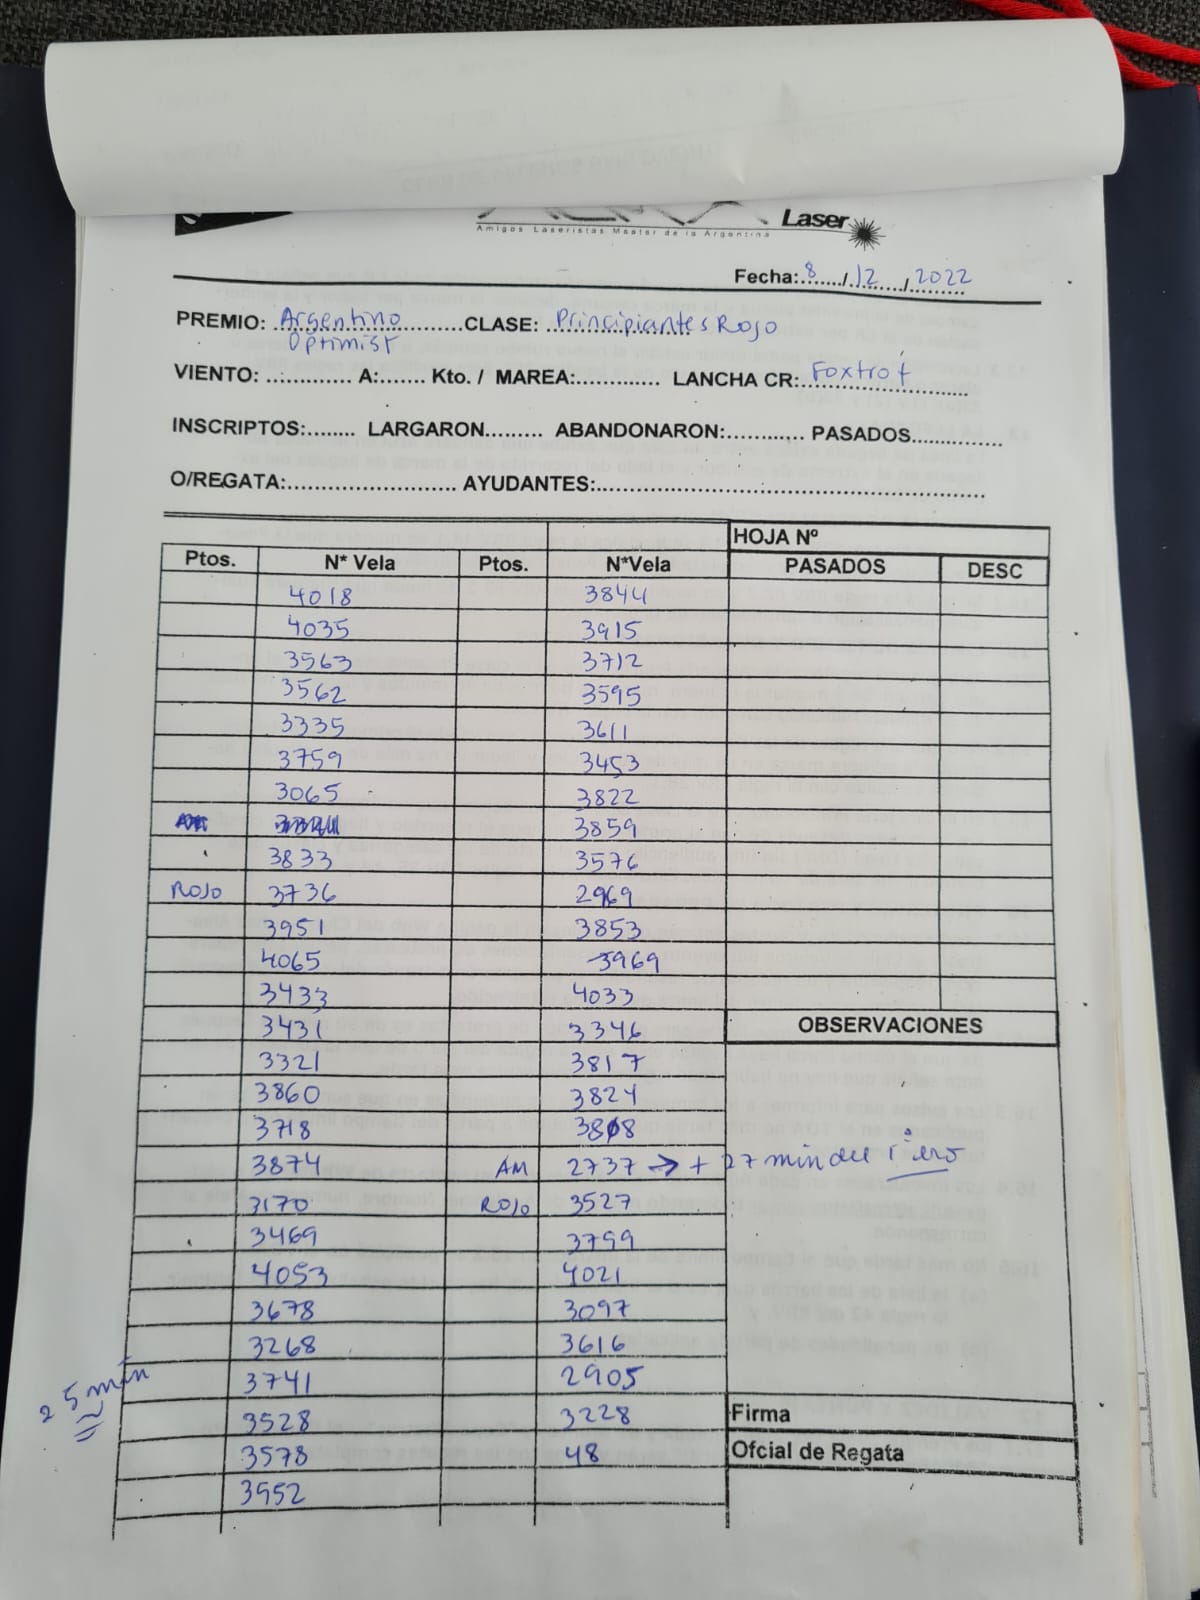 Amigos Laseristas Master de la Argentina
Laser
Fecha: 8 / 12 / 2022
PREMIO: Argentino Optimist CLASE: Principiantes Rojo
VIENTO: ............ A:....... Kto. / MAREA:............ LANCHA CR: Foxtrot
INSCRIPTOS:........ LARGARON......... ABANDONARON:............ PASADOS..............
O/REGATA:........................ AYUDANTES:........................
HOJA Nº
Ptos. N* Vela Ptos. N*Vela PASADOS DESC
4018 3844
4035 3915
3563 3712
3562 3595
3335 3611
3759 3453
3065 3822
3859
3833 3576
ROJO 3736 2969
3951 3853
4065 3969
3433 4033
3431 3346
OBSERVACIONES
3321 3817
3860 3824
3718 3808
3874 AM 2737 → + 27 min del 1ero
3170 ROJO 3527
3469 3799
4053 4021
3678 3097
3268 3616
25 min 3741 2905
3528 3228 Firma
3578 48 Ofcial de Regata
3952